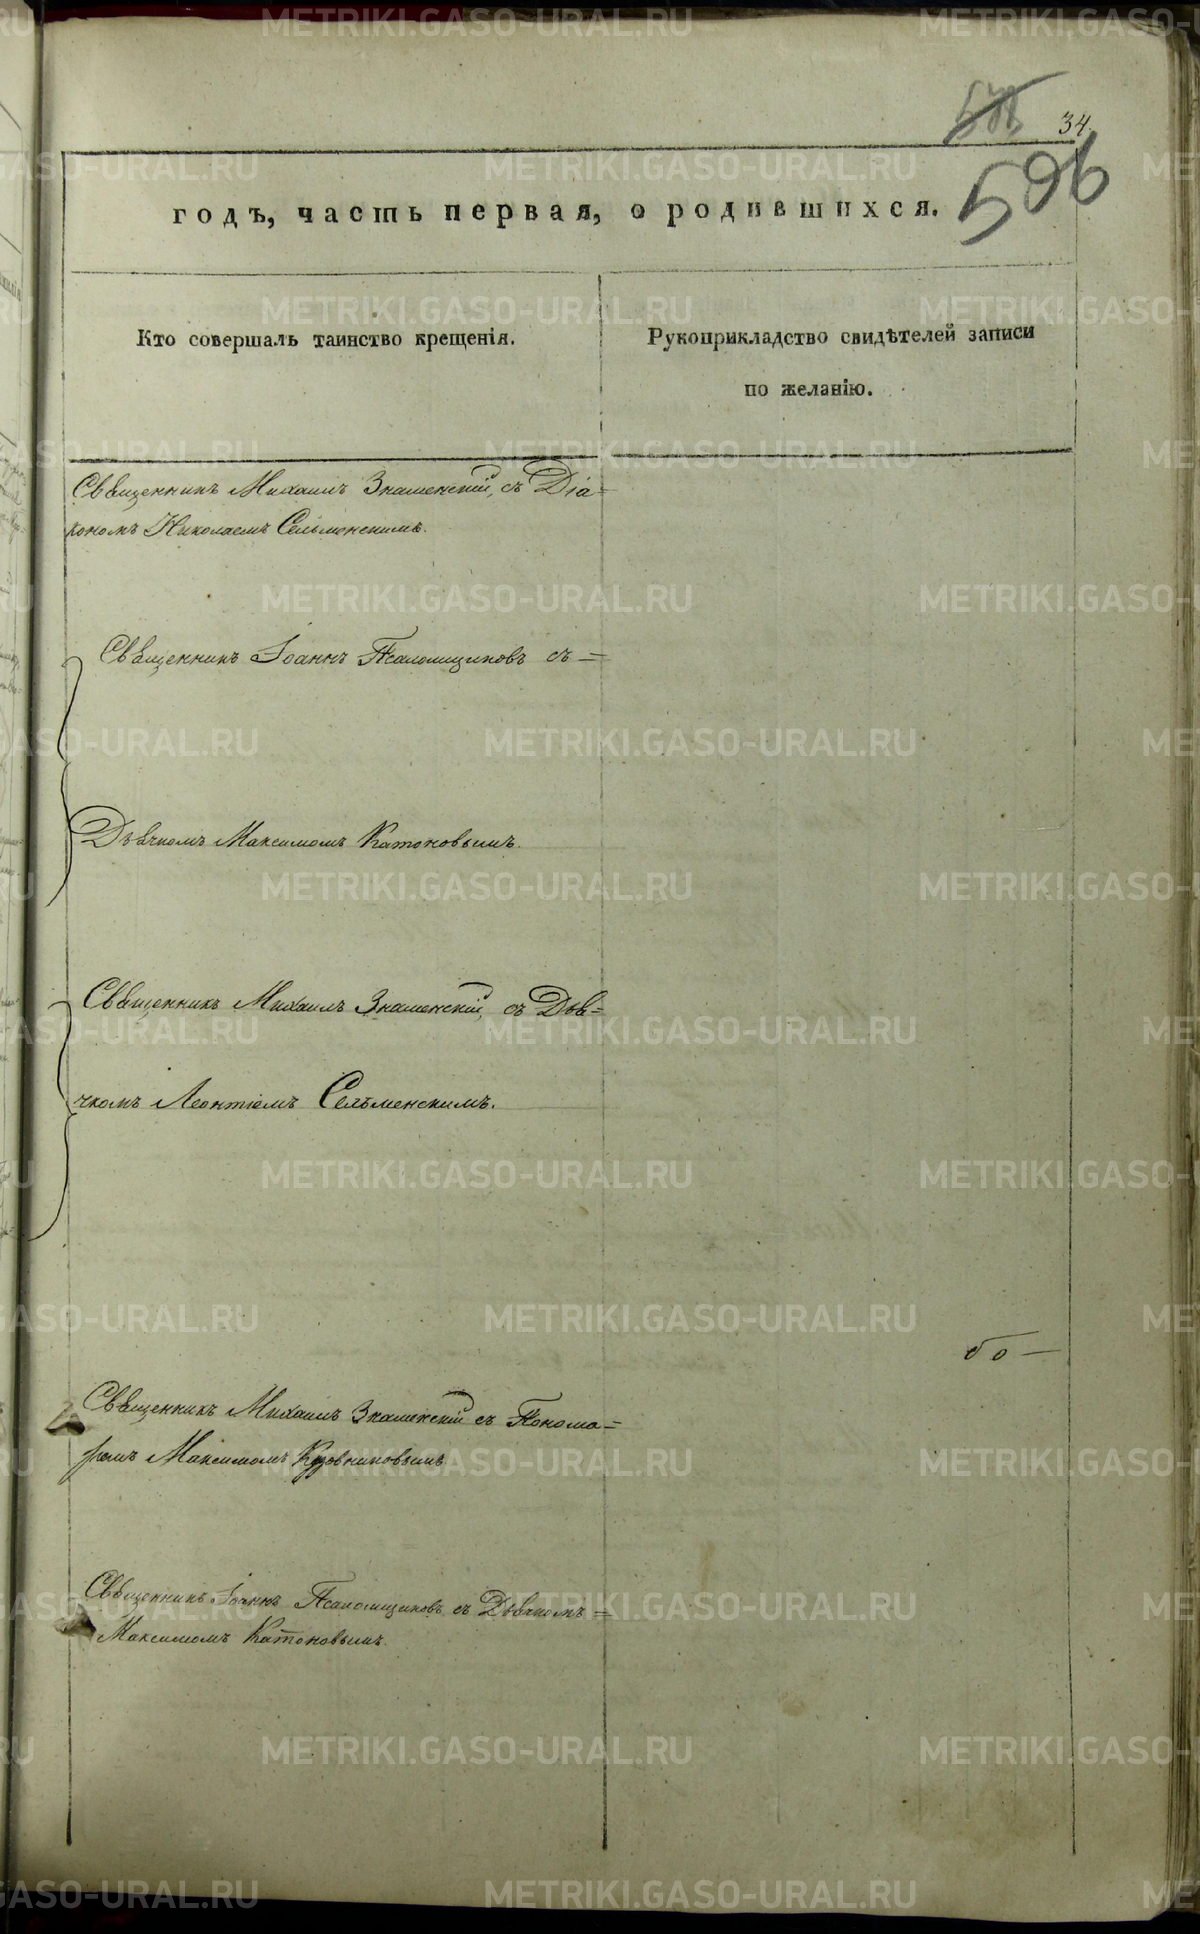 34.
596
годъ, часть первая, о родившихся.
Кто совершалъ таинство крещенія.
Рукоприкладство свидѣтелей записи
по желанію.
Священникъ Михаилъ Знаменскій, съ Діа=
кономъ Николаемъ Сельменскимъ.
Священникъ Іоаннъ Псаломщиковъ съ =
Дьячкомъ Максимомъ Катоновымъ.
Священникъ Михаилъ Знаменскій, съ Дья=
чкомъ Леонтіемъ Сельменскимъ.
Священникъ Михаилъ Знаменскій съ Понома=
ремъ Максимомъ Кузовниковымъ
Священникъ Іоаннъ Псаломщиковъ съ Дьячкомъ =
Максимомъ Катоновымъ.
METRIKI.GASO-URAL.RU